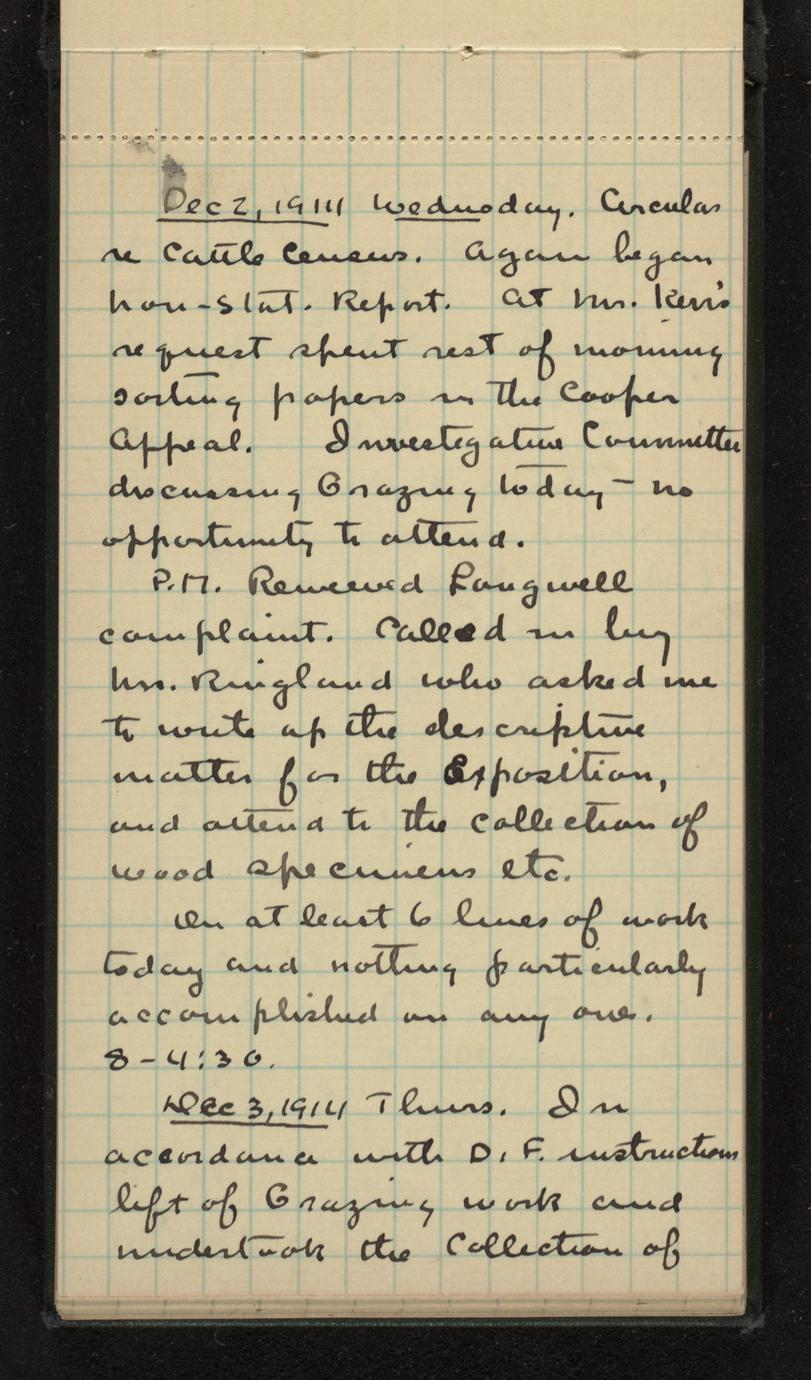 Dec 2, 1914 Wednesday. Circular
re Cattle Census. Again began
Non-Stat. Report. At Mr. Kerr's
request spent rest of morning
sorting papers in the Cooper
Appeal. Investigative Committee
discussing Grazing today - no
opportunity to attend.
P.M. Reviewed Longwell
complaint. Called in by
Mr. Ringland who asked me
to write up the descriptive
matter for the Exposition,
and attend to the collection of
wood specimens etc.
On at least 6 lines of work
today and nothing particularly
accomplished on any one.
8-4:30.
Dec 3, 1914 Thurs. In
accordance with D.F. instructions
left of Grazing work and
undertook the Collection of